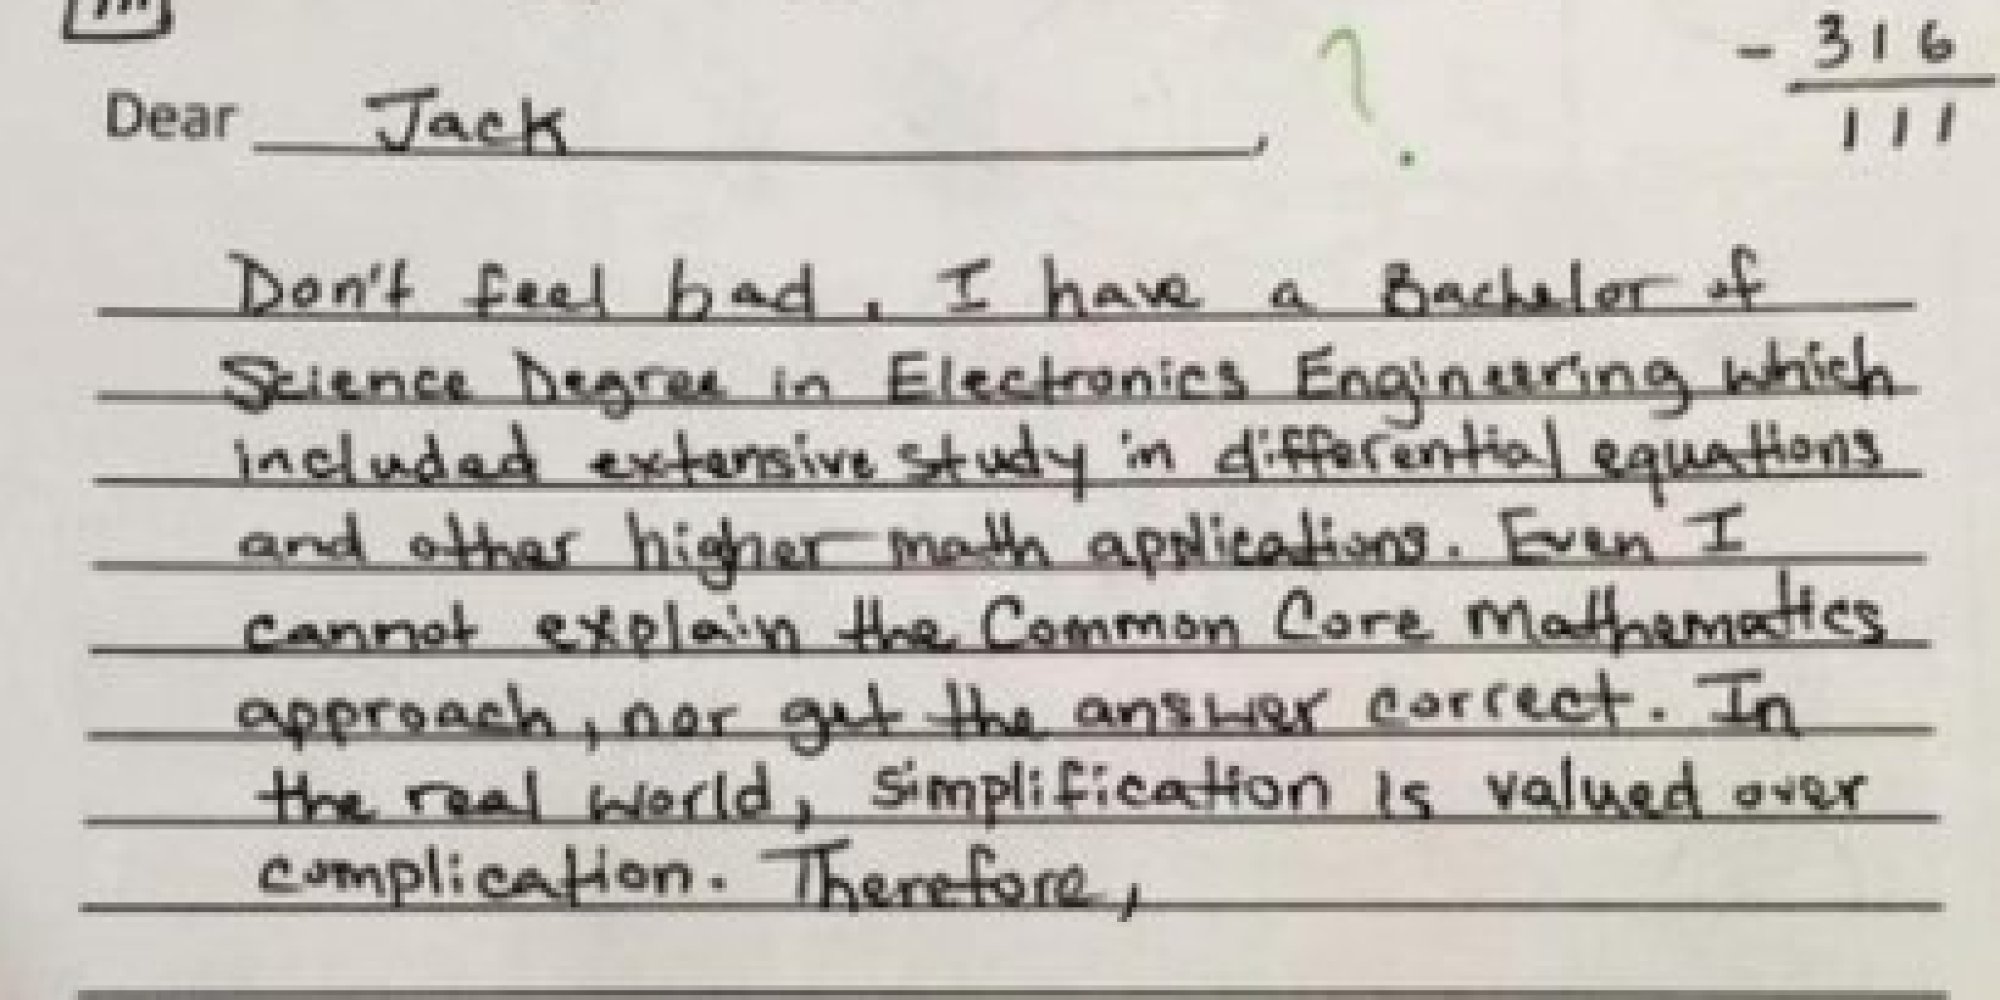 111
- 316
111
Dear Jack,
?
Don't feel bad. I have a Bachelor of
Science Degree in Electronics Engineering which
included extensive study in differential equations
and other higher math applications. Even I
cannot explain the Common Core Mathematics
approach, nor get the answer correct. In
the real world, simplification is valued over
complication. Therefore,